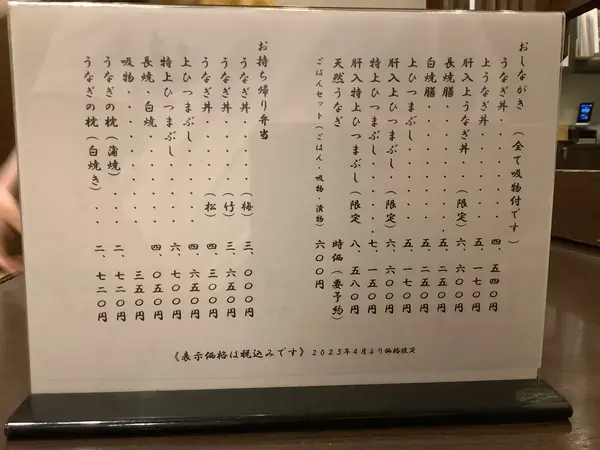 おしながき (全て吸物付です)
うなぎ丼・・・・・・・四、五四〇円
上うなぎ丼・・・・・・五、一七〇円
肝入上うなぎ丼 (限定) 六、〇〇〇円
長焼膳・・・・・・・・五、二五〇円
白焼膳・・・・・・・・五、二五〇円
上ひつまぶし・・・・・五、一七〇円
肝入上ひつまぶし (限定) 六、〇〇〇円
特上ひつまぶし・・・・七、一五〇円
肝入特上ひつまぶし (限定) 八、五八〇円
天然うなぎ 時価(要予約)
ごはんセット(ごはん・吸物・漬物) 六〇〇円
お持ち帰り弁当
うなぎ丼・・・・ (梅) 三、〇〇〇円
うなぎ丼・・・・ (竹) 三、六五〇円
うなぎ丼・・・・ (松) 四、三〇〇円
上ひつまぶし・・・・・四、六五〇円
特上ひつまぶし・・・・六、七〇〇円
長焼・白焼・・・・・・四、〇五〇円
吸物・・・・・・・・・三五〇円
うなぎの枕(蒲焼)・・・二、七二〇円
うなぎの枕(白焼き)・・二、七二〇円
《表示価格は税込みです》 2023年4月より価格改定